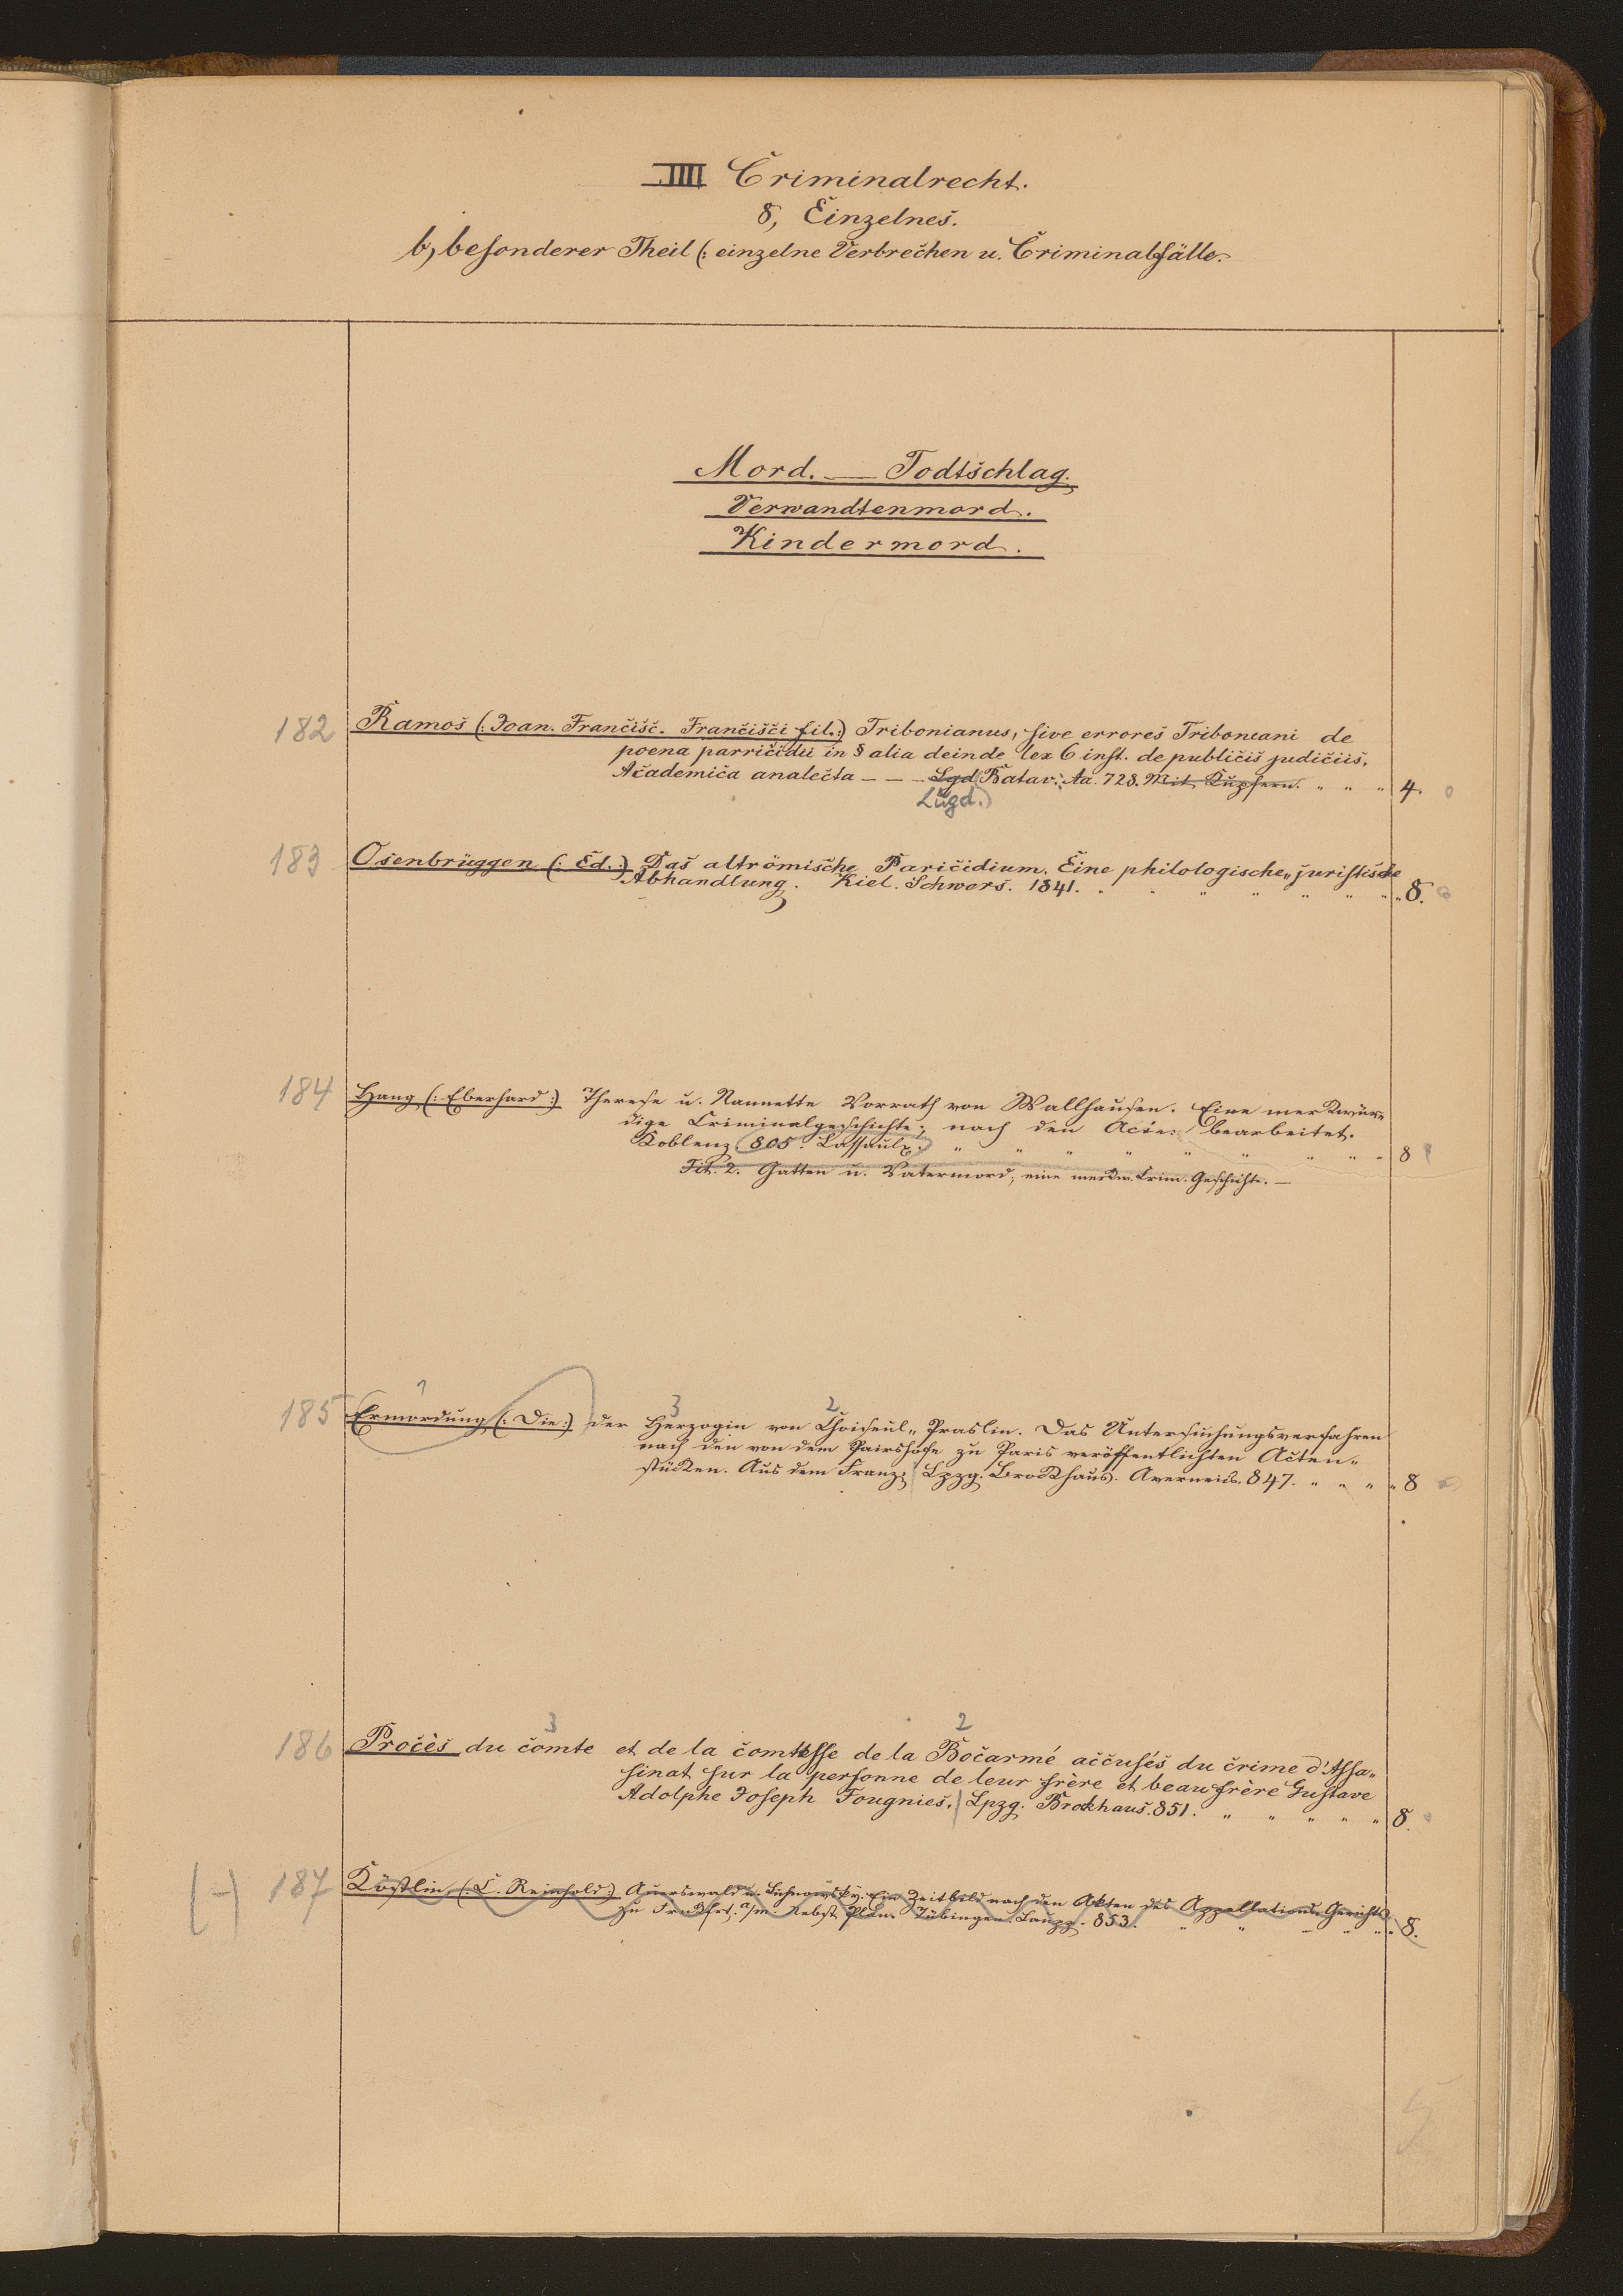 IIII Criminalrecht.
8, Einzelnes.
b, besonderer Theil (: einzelne Verbrechen u. Criminalfälle.
Mord. — Todtschlag.
Verwandtenmord.
Kindermord.
182 Ramos (: Joan. Francisc. Francisci fil. :) Tribonianus, sive errores Triboniani de
poena parricidii in § alia deinde lex 6 inst. de publicis judiciis.
Academica analecta – – – Lgd Batav: Aa. 728. Mit Kupfern. " " " 4.
Lugd.
183 Osenbrüggen (: Ed. :) Das altrömische Paricidium. Eine philologische„juristische
Abhandlung. Kiel. Schwers. 1841. " " " " " " " 8.
184 Haug (: Eberhard :) Therese u. Nannette Vorrath von Wallhausen. Eine merkwür„
dige Criminalgeschichte; nach den Acten bearbeitet.
Koblenz. 805. Lassaulx. " " " " " " " " " 8
Tit. 2. Gatten u. Vatermord; eine merkw. Crim. Geschichte. —
1 3 2
185 Ermordung (: Die :) der Herzogin von Choiseul„Praslin. Das Untersuchungsverfahren
nach den von dem Pairshofe zu Paris veröffentlichten Acten„
stücken. Aus dem Franz. Lpzg. Brockhaus. Averneius. 847. " " " " 8
3 2
186 Procès du comte et de la comtesse de la Bocarmé accusés du crime d'Assa„
sinat sur la personne de leur frère et beaufrère Gustave
Adolphe Joseph Fougnies. Lpzg. Brockhaus. 851. " " " " " 8.
(-) 187 Köstlin, (: C. Reinhold :) Auerswald u. Lichnowsky. Ein Zeitbild nach den Akten des Appellations„Gerichts
zu Frankfrt. a/m. Nebst Plan. Tübingen. Laupp. 853. " " " " " 8.